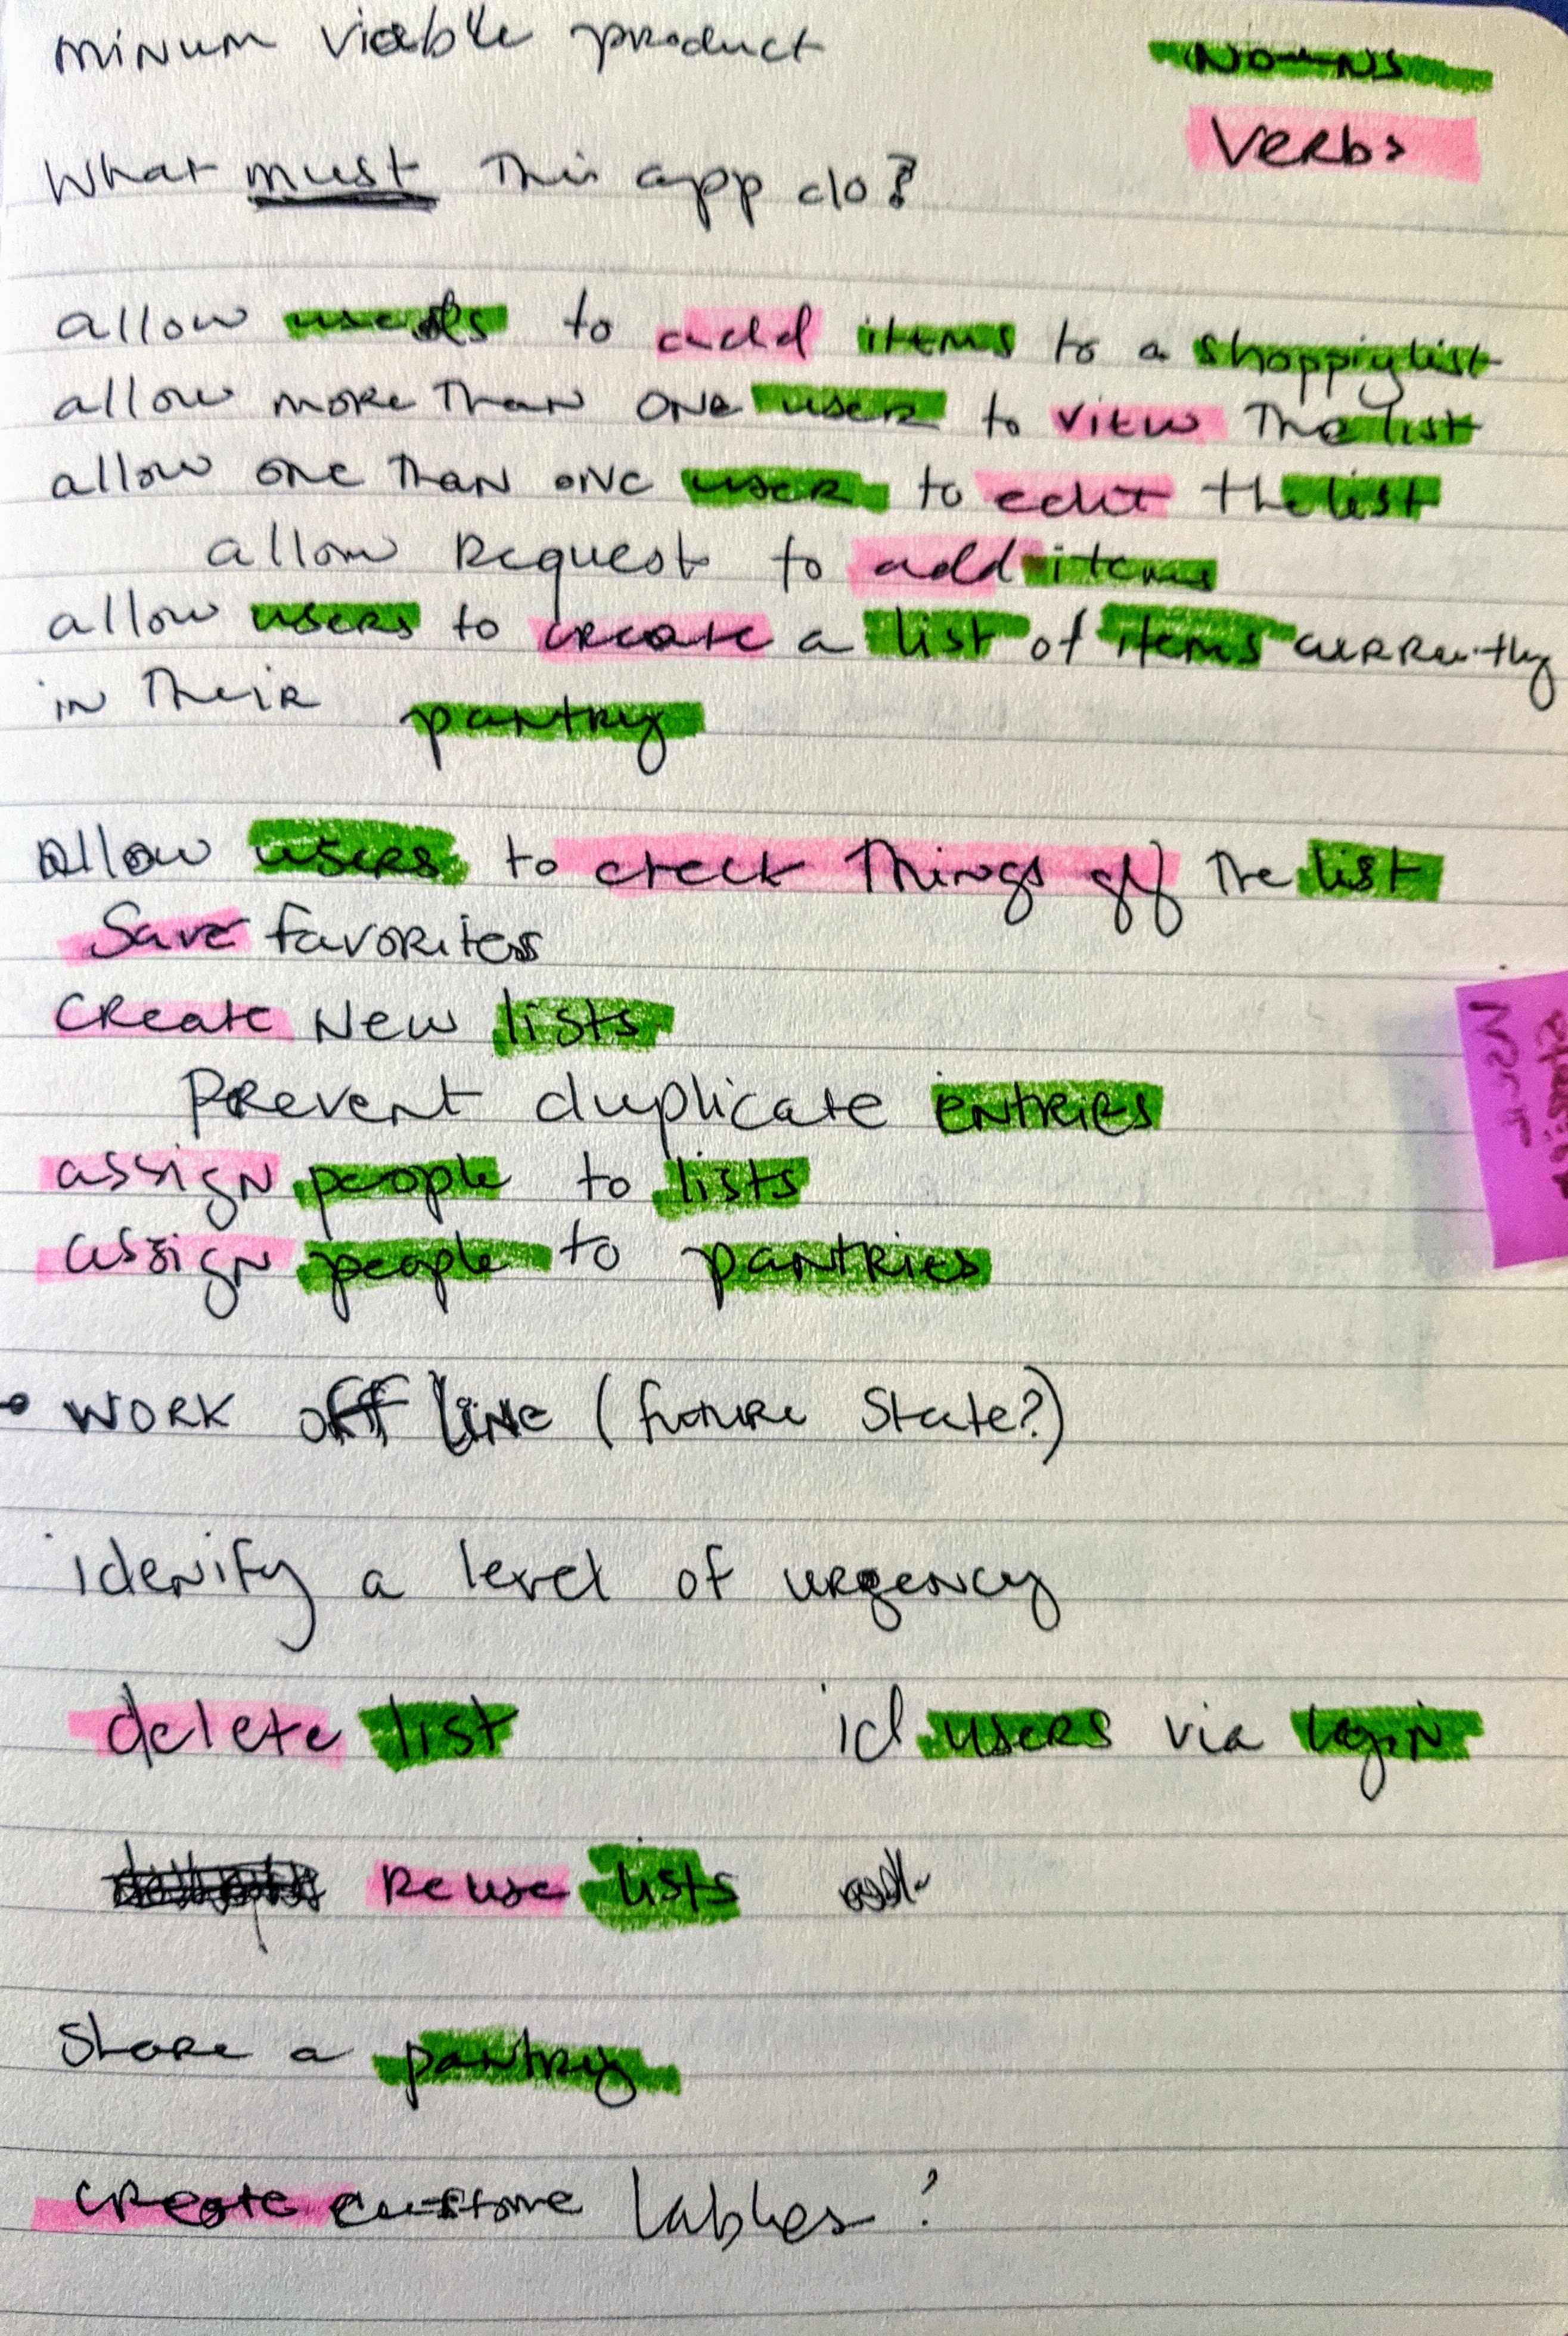 minum viable product
Nouns
Verbs
What must this app do?
allow users to add items to a shoppiglist
allow more than one user to view the list
allow one than one user to edit the list
allow request to add items
allow users to create a list of items currently
in their pantry
Allow users to check things off the list
Save favorites
create new lists
Prevent duplicate entries
assign people to lists
assign people to pantries
• work off line (future state?)
idenify a level of urgency
delete list
id users via login
Reuse lists
Share a pantry
create custome lables?